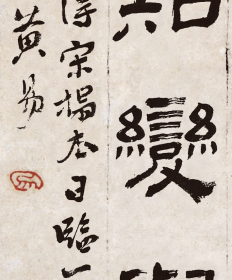 知變
得宋搨本日臨一
黃易